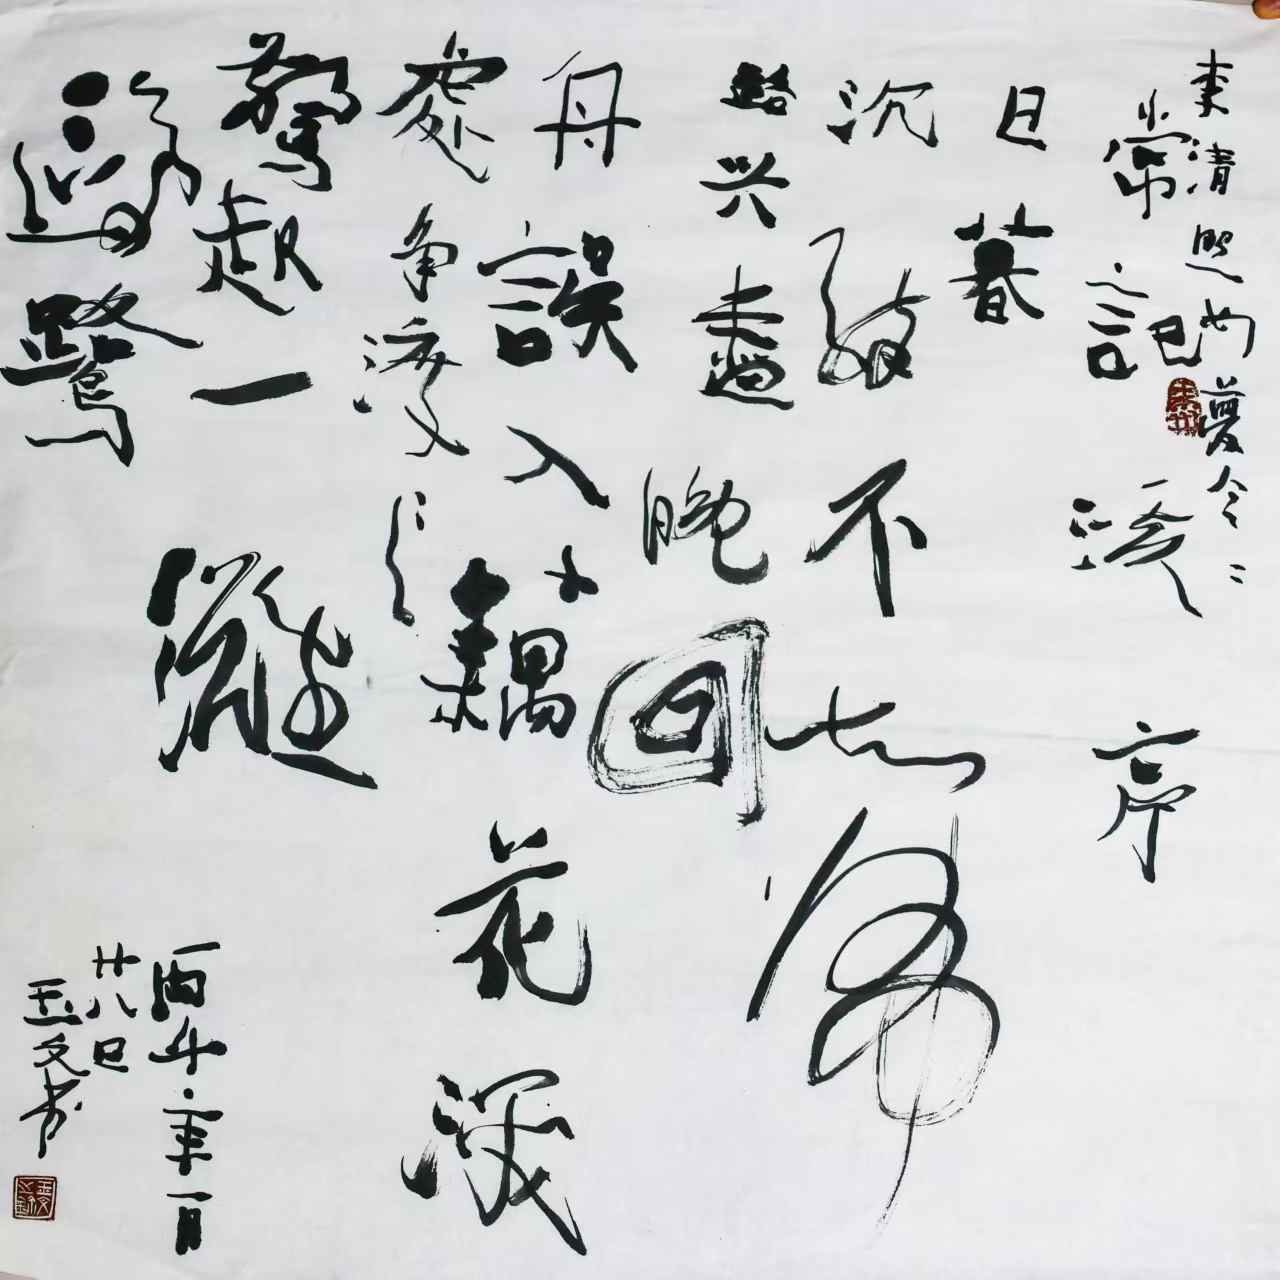 李清照如夢令
常記溪亭
日暮
沉醉不知歸
路兴盡晚回
舟誤入藕花深
處争渡
驚起一灘
鷗鷺
丙午年一月
廿八日
玉文书